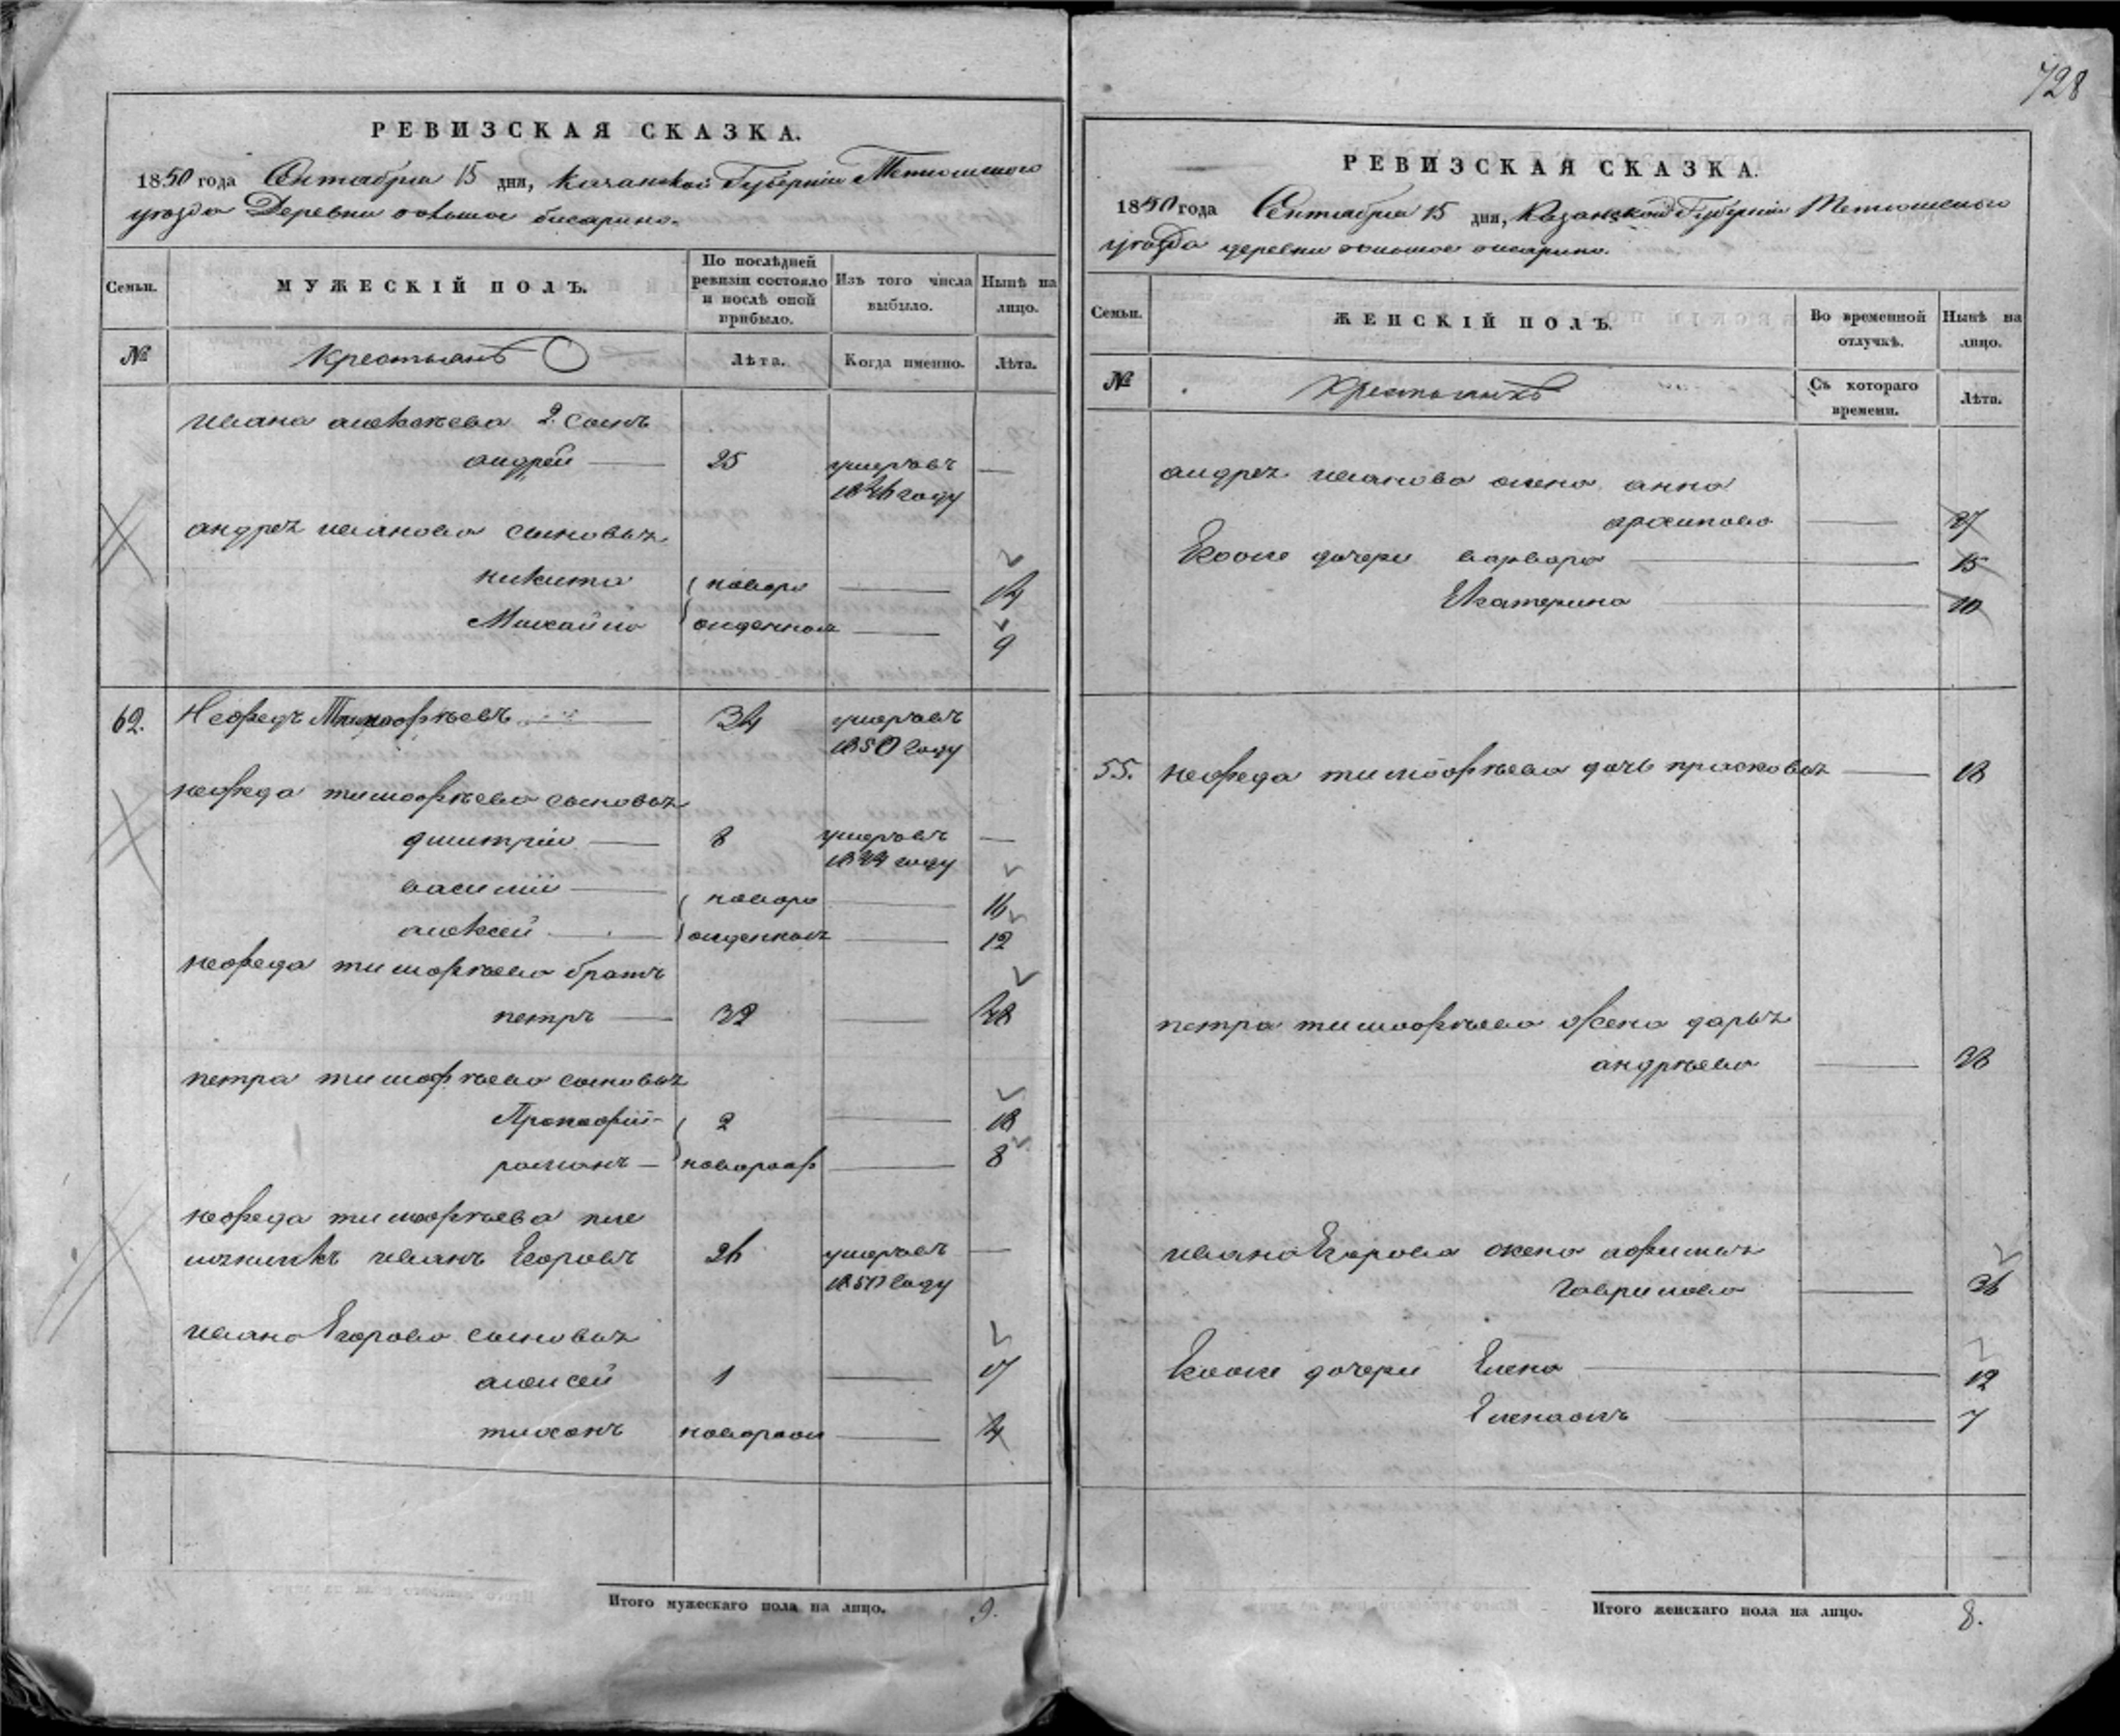 728
РЕВИЗСКАЯ СКАЗКА.
1850 года Сентября 15 дня, Казанской Губерніи Тетюшскаго
уезда Деревни большое бисарино.
Семьи.
МУЖЕСКІЙ ПОЛЪ.
По послѣдней ревизіи состояло и послѣ оной прибыло.
Изъ того числа выбыло.
Нынѣ на лицо.
№
Крестьянъ
Лѣта.
Когда именно.
Лѣта.
ивана алексеева 2. сынъ
андрей 25 умеръвъ —
1846 году
андрея иванова сыновья
никита новоро 14
Михайло жденныя 9
62. Нефедъ Тимофѣевъ 34 умеръвъ
1850 году
нефеда тимофѣева сыновья
дмитрій 8 умеръвъ —
1844 году
василій новоро 16
алексей жденныя 12
нефеда тимофѣева братъ
петръ 32 48
петра тимофѣева сыновья
Прокофій 2 18
романъ новорож 8
нефеда тимофѣева пле
мянникъ иванъ Егоровъ 26 умеръвъ —
1850 году
ивана Егорова сыновья
алексей 1 17
тихонъ новорож 4
Итого мужескаго пола на лицо. 9.
РЕВИЗСКАЯ СКАЗКА.
1850 года Сентября 15 дня, Казанской Губерніи Тетюшскаго
уезда деревни большое бисарино.
Семьи.
ЖЕНСКІЙ ПОЛЪ.
Во временной отлучкѣ.
Нынѣ на лицо.
№
Крестьянъ
Съ котораго времени.
Лѣта.
андрея иванова жена анна
архипова
Егоже дочери варвара 15
Екатерина 10
55. нефеда тимофѣева дочь прасковья 18
петра тимофѣева жена дарья
андрѣева 38
ивана Егорова жена афимья
гаврилова 36
Егоже дочери Елена 12
7
Итого женскаго пола на лицо. 8.